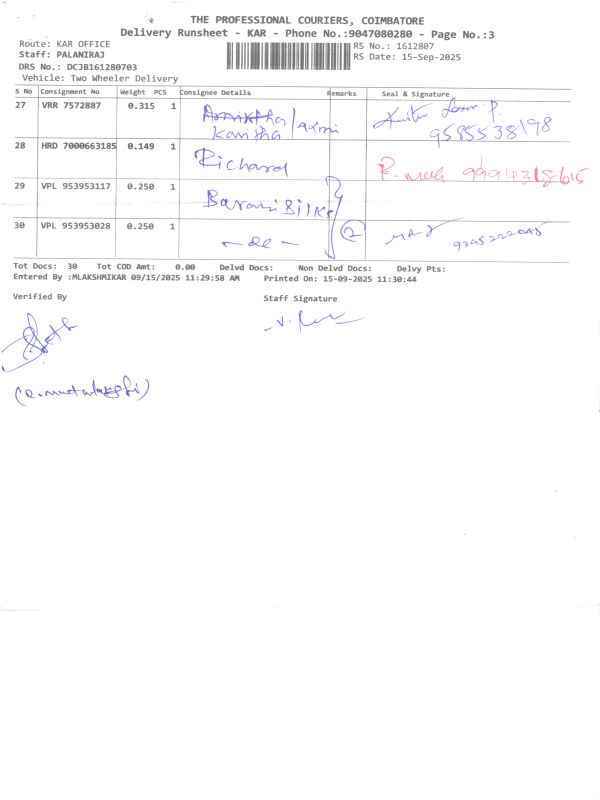 THE PROFESSIONAL COURIERS, COIMBATORE
Delivery Runsheet - KAR - Phone No.:9047080280 - Page No.:3
Route: KAR OFFICE
RS No.: 1612807
Staff: PALANIRAJ
RS Date: 15-Sep-2025
DRS No.: DCJB161280703
Vehicle: Two Wheeler Delivery
S No Consignment No Weight PCS Consignee Details Remarks Seal & Signature
27 VRR 7572887 0.315 1
Kavitha
9585538198
28 HRD 7000663185 0.149 1 Richard
29 VPL 953953117 0.250 1
30 VPL 953953028 0.250 1 2
Tot Docs: 30 Tot COD Amt: 0.00 Delvd Docs: Non Delvd Docs: Delvy Pts:
Entered By :MLAKSHMIKAR 09/15/2025 11:29:58 AM Printed On: 15-09-2025 11:30:44
Verified By Staff Signature